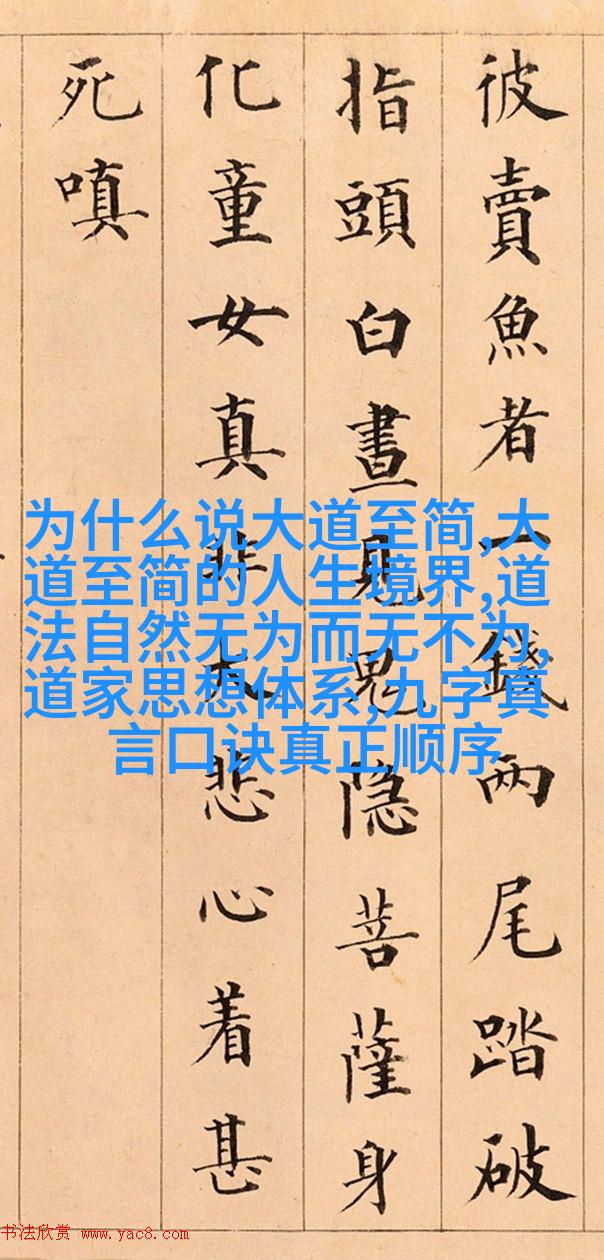 彼賣魚者一錢兩尾踏破
指頭白晝見鬼隐菩薩身
化童女真非大悲心着甚
死嗔
为什么说大道至简,大
道至简的人生境界,道
法自然无为而无不为,
道家思想体系,九字真
言口诀真正顺序
书法欣赏 www.yac8.com